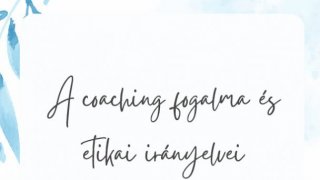 A coaching fogalma és
etikai irányelvei